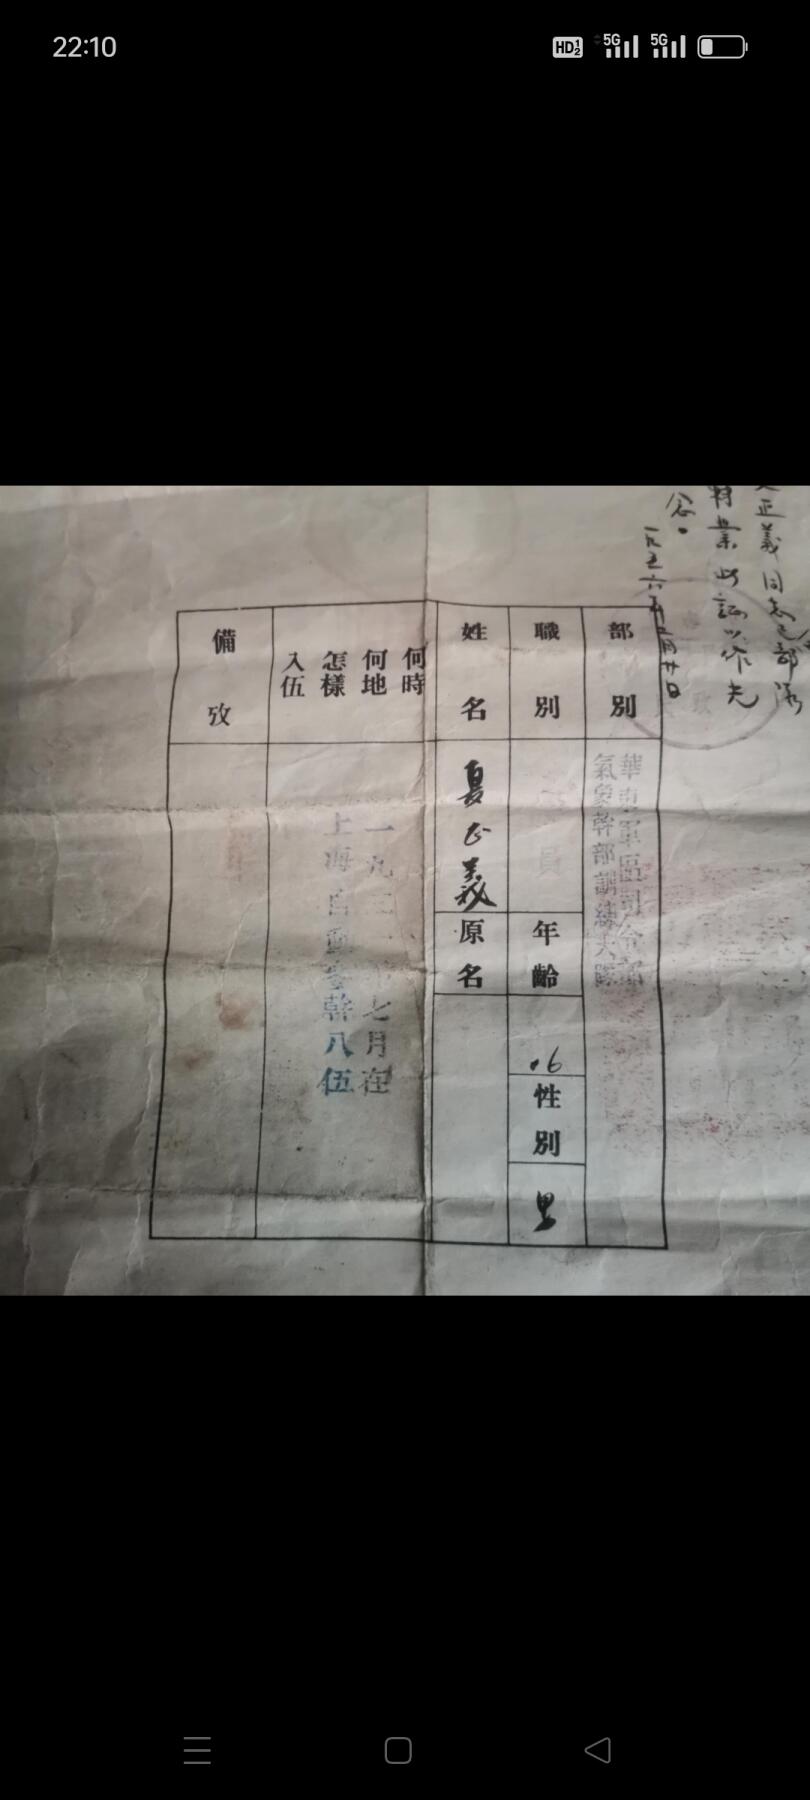 22:10
HD 1 2 5G 5G
正義同志已部隊
業此證以作
念。
一九五六年
部別
華東軍區司令部
氣象幹部訓練大隊
職別
員
年齡
16
性別
男
姓名
夏正義
原名
何時
何地
怎樣
入伍
一九五一年七月在
上海自動參幹入伍
備攷